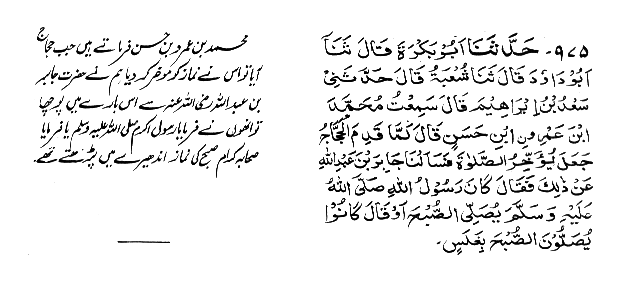 ۹۷۵۔ حَدَّثَنَا اَبُوْبَكْرَةَ قَالَ ثَنَا
اَبُوْدَاوٗدَ قَالَ ثَنَا شُعْبَةُ قَالَ حَدَّثَنِیْ
سَعْدُ بْنُ اِبْرَاهِیْمَ قَالَ سَمِعْتُ مُحَمَّدَ
ابْنَ عَمْرِو بْنِ حَسَنٍ قَالَ لَمَّا قَدِمَ الْحَجَّاجُ
جَعَلَ یُؤَخِّرُ الصَّلٰوةَ فَسَاَلْنَا جَابِرَ بْنَ عَبْدِاللّٰهِ
عَنْ ذٰلِكَ فَقَالَ كَانَ رَسُوْلُ اللّٰهِ صَلَّى اللّٰهُ
عَلَیْهِ وَسَلَّمَ یُصَلِّی الصُّبْحَ اَوْ قَالَ كَانُوْا
یُصَلُّوْنَ الصُّبْحَ بِغَلَسٍ۔
محمد بن عمرو بن حسن فرماتے ہیں جب حجاج
آیا تو اس نے نماز کو مؤخر کر دیا ہم نے حضرت جابر
بن عبداللہ رضی اللہ عنہ سے اس بارے میں پوچھا
تو انھوں نے فرمایا رسول اکرم صلی اللہ علیہ وسلم یا فرمایا
صحابہ کرام صبح کی نماز اندھیرے میں پڑھتے تھے۔